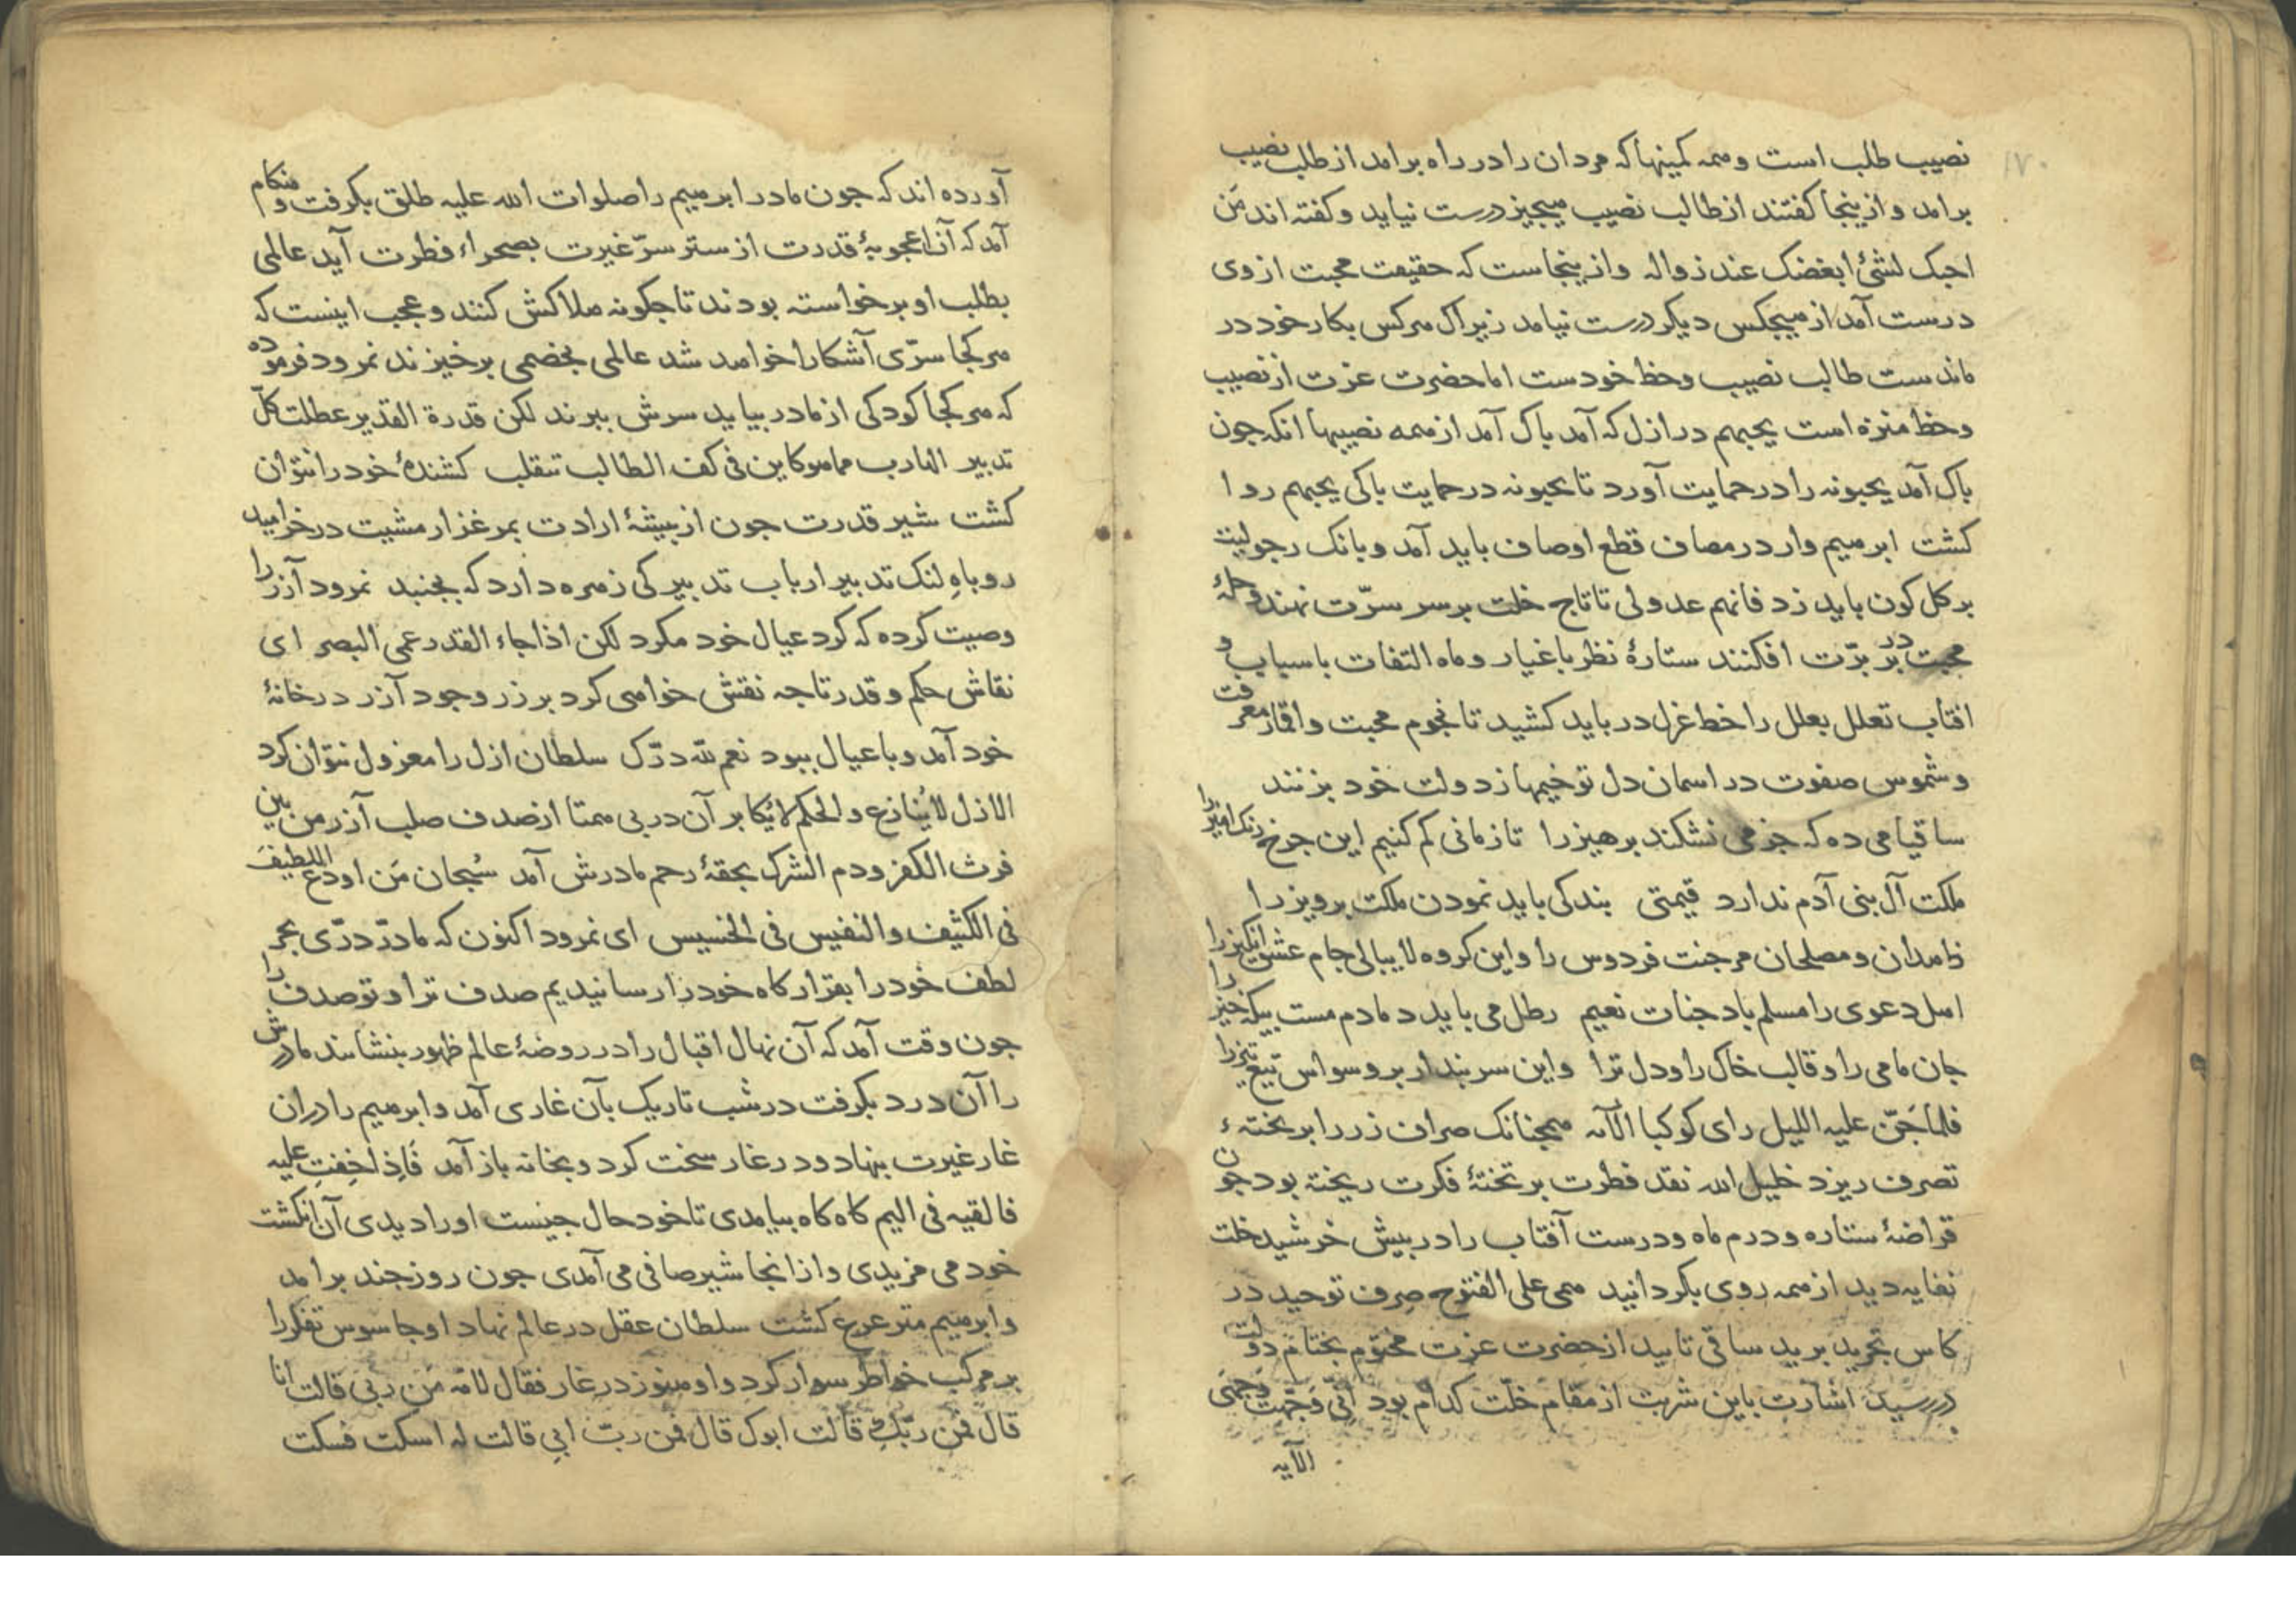 ۱۷۰
نصیب طلب است و همه کمینها که مردان را در راه برامد از طلب نصیب
برامد و ازینجا کفتند از طالب نصیب هیچیز درست نیاید و کفته اند مَن
احبک لشئ ابغضک عند زواله و ازینجاست که حقیقت محبت از وی
درست آمد از هیچکس دیکر درست نیامد زیراک هرکس بکار خود در
مانده ست طالب نصیب و حظ خودست اما حضرت عزت از نصیب
و حظ منزه است یحبهم در ازل که آمد باک آمد از همه نصیبها انکه جون
باک آمد یحبونه را در حمایت آورد تا یحبونه در حمایت باکی یحبهم روا
کشت ابرهیم وار در مصاف قطع اوصاف باید آمد و بانک رجولیت
بر کل کون باید زد فانهم عدو لی تا تاج خلت بر سر سرّت نهند و حلهٔ
محبت در بر برّت افکنند ستارهٔ نظر باغیار و ماه التفات باسباب و
افتاب تعلل بعلل را خط عزل در باید کشید تا نجوم محبت و اقمار معرفت
و شموس صفوت در اسمان دل تو خیمها زدولت خود بزنند
ساقیا می ده که جز می نشکند برهیز را تا زمانی کم کنیم این جرخ رنک امیز را
ملکت آل بنی آدم ندارد قیمتی بندکی باید نمودن ملکت برویز را
زاهدان و مصلحان مر جنت فردوس را و این کروه لاابالی جام عشق انکیز را
اهل دعوی را مسلم باد جنات نعیم رطل می باید دمادم مست بیکه خیز را
جان ما می را و قالب خاک را و دل ترا و این سر بندار بر وسواس تیغ تیز را
فلما جَنّ علیه اللیل رای کوکبا الآیه همجنانک صراف زر را بر تختهء
تصرف ریزد خلیل الله نقد فطرت بر تختهٔ فکرت ریخته بود جون
قراضهٔ ستاره و درم ماه و درست آفتاب را در بیش خرشید خلت
نفایه دید از همه روی بکردانید همی علی الفتوح صِرف توحید در
کاس تجرید برید ساقی تایید از حضرت عزت مختوم بختام دولت
دررسید اشارت باین شربت از مقام خلّت کدام بود اِنّی وَجّهت وَجهِی
الآیه
آورده اند که جون مادر ابرهیم را صلوات الله علیه طلق بکرفت و هنکام
آمد که آن اعجوبهٔ قدرت از ستر سرّ غیرت بصحراء فطرت آید عالمی
بطلب او برخواسته بودند تا جکونه هلاکش کنند و عجب اینست که
هر کجا سرّی آشکارا خواهد شد عالمی بخصمی برخیزند نمرود فرموده
که هر کجا کودکی از مادر بیاید سرش ببرند لکن قدرة القدیر عطلت کلّ
تدبیر الهارب مما هو کاین فی کف الطالب تتقلب کشندهٔ خود را نتوان
کشت شیر قدرت جون از بیشهٔ ارادت بمرغزار مشیت درخرامید
روباهِ لنک تدبیر ارباب تدبیر کی زهره دارد که بجنبد نمرود آزر را
وصیت کرده که کرد عیال خود مکرد لکن اذا جاء القدر عمی البصر ای
نقاش حکم و قدر تا جه نقش خواهی کرد بر زر وجود آزر در خانهٔ
خود آمد و با عیال ببود نعم لله درّک سلطان ازل را معزول نتوان کرد
الازل لا یُنازع و الحکم لا یُکابر آن در بی همتا از صدف صلب آزر من بین
فرث الکفر و دم الشرک بحقهٔ رحم مادرش آمد سُبحان مَن اودع اللطیفَ
فی الکثیف و النفیس فی الخسیس ای نمرود اکنون که ما درّ درّی بحر
لطف خود را بقرارکاه خود رسانیدیم صدف ترا و تو صدف را
جون وقت آمد که آن نهال اقبال را در روضهٔ عالم ظهور بنشانند مادرش
را آن درد بکرفت در شب تاریک بآن غاری آمد و ابرهیم را دران
غار غیرت بنهاد و در غار سخت کرد و بخانه باز آمد فَاِذا خِفتِ علیه
فالقیه فی الیم کاه کاه بیامدی تا خود حال جیست او را دیدی آن انکشت
خود می مزیدی و از انجا شیر صافی می آمدی جون روز جند برامد
و ابرهیم مترعرع کشت سلطان عقل در عالم نهاد او جاسوس تفکر را
بر مرکب خواطر سوار کرد و او هنوز در غار فقال لامّه مَن ربّی قالت انا
قال فمن ربّکِ قالت ابوک قال فمن ربّ ابی قالت له اسکت فسکت